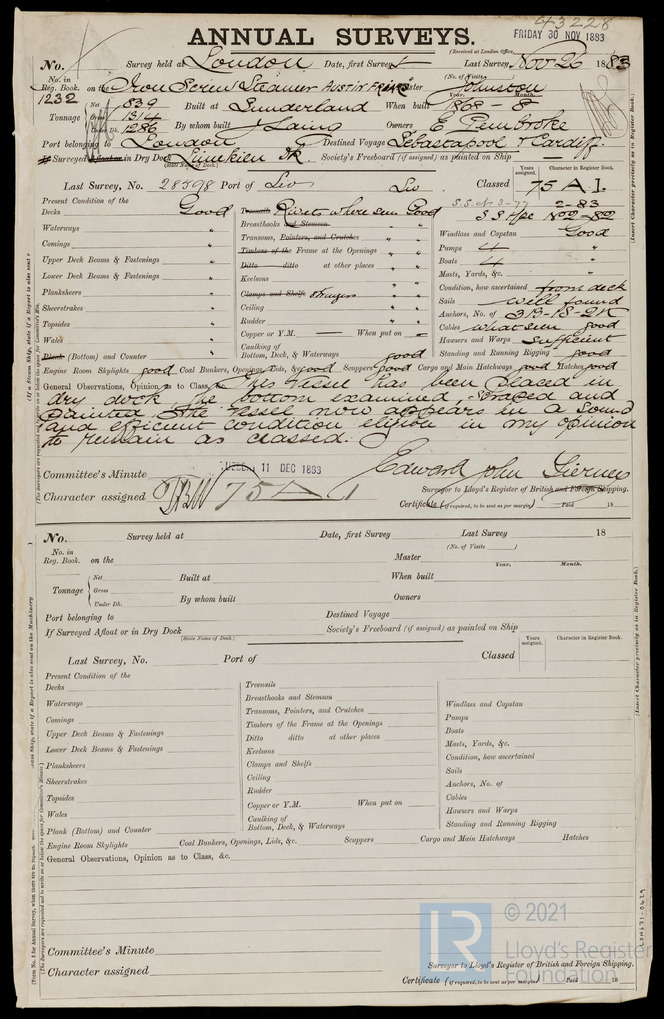 43228
ANNUAL SURVEYS.
FRIDAY 30 NOV 1883
(Received at London Office,
No. Survey held at London Date, first Survey Last Survey Nov 26 1883
(No. of Visits
No. in Reg. Book. on the Iron Screw Steamer AUSTIN FRIARS Master Johnson
1232
Year. Month.
Tonnage Net 839 Built at Sunderland When built 1868 - 8
Gross 1314
Under Dk. 1286 By whom built J Laing Owners E Pembroke
Port belonging to London Destined Voyage Sebastapool & Cardiff
If Surveyed Afloat or in Dry Dock Limekiln Dk. Society's Freeboard (if assigned) as painted on Ship
(State Name of Dock.)
Years assigned. Character in Register Book.
Last Survey, No. 28598 Port of Liv Liv Classed 75 A.1.
S.S. No 3-77 2-83
S S Hpl No 2-82
Present Condition of the
Decks Good
Waterways "
Comings "
Upper Deck Beams & Fastenings "
Lower Deck Beams & Fastenings "
Planksheers "
Sheerstrakes "
Topsides "
Wales "
Plank (Bottom) and Counter "
Treenails Rivets where seen Good
Breasthooks and Stemson " "
Transoms, Pointers, and Crutches " "
Timbers of the Frame at the Openings " "
Ditto ditto at other places " "
Keelsons " "
Clamps and Shelfs Stringers " "
Ceiling " "
Rudder " "
Copper or Y.M. When put on
Caulking of Bottom, Deck, & Waterways good
Windlass and Capstan Good
Pumps 4 "
Boats 4 "
Masts, Yards, &c. "
Condition, how ascertained from deck
Sails well found
Anchors, No. of 3B-1S-2K
Cables what seen good
Hawsers and Warps Sufficient
Standing and Running Rigging good
Engine Room Skylights good Coal Bunkers, Openings, Lids, &c. good Scuppers good Cargo and Main Hatchways good Hatches good
General Observations, Opinion as to Class, &c. This Vessel has been placed in
dry dock, the bottom examined, scraped and
painted. The vessel now appears in a sound
and efficient condition eligible in my opinion
to remain as classed.
Committee's Minute 11 DEC 1883 Edward John Tierney
Character assigned 75 A 1 Surveyor to Lloyd's Register of British and Foreign Shipping.
Certificate (if required, to be sent as per margin) Paid 18
No. Survey held at Date, first Survey Last Survey 18
(No. of Visits )
No. in Reg. Book. on the Master
Year. Month.
Tonnage Net Built at When built
Gross
Under Dk. By whom built Owners
Port belonging to Destined Voyage
If Surveyed Afloat or in Dry Dock Society's Freeboard (if assigned) as painted on Ship
(State Name of Dock.)
Years assigned. Character in Register Book.
Last Survey, No. Port of Classed
Present Condition of the
Decks
Waterways
Comings
Upper Deck Beams & Fastenings
Lower Deck Beams & Fastenings
Planksheers
Sheerstrakes
Topsides
Wales
Plank (Bottom) and Counter
Treenails
Breasthooks and Stemson
Transoms, Pointers, and Crutches
Timbers of the Frame at the Openings
Ditto ditto at other places
Keelsons
Clamps and Shelfs
Ceiling
Rudder
Copper or Y.M. When put on
Caulking of Bottom, Deck, & Waterways
Windlass and Capstan
Pumps
Boats
Masts, Yards, &c.
Condition, how ascertained
Sails
Anchors, No. of
Cables
Hawsers and Warps
Standing and Running Rigging
Engine Room Skylights Coal Bunkers, Openings, Lids, &c. Scuppers Cargo and Main Hatchways Hatches
General Observations, Opinion as to Class, &c.
Committee's Minute
Character assigned
Surveyor to Lloyd's Register of British and Foreign Shipping.
Certificate (if required, to be sent as per margin) Paid 18
(Insert Character precisely as in Register Book.)
(Insert Character precisely as in Register Book.)
LR © 2021
Lloyd's Register
Foundation